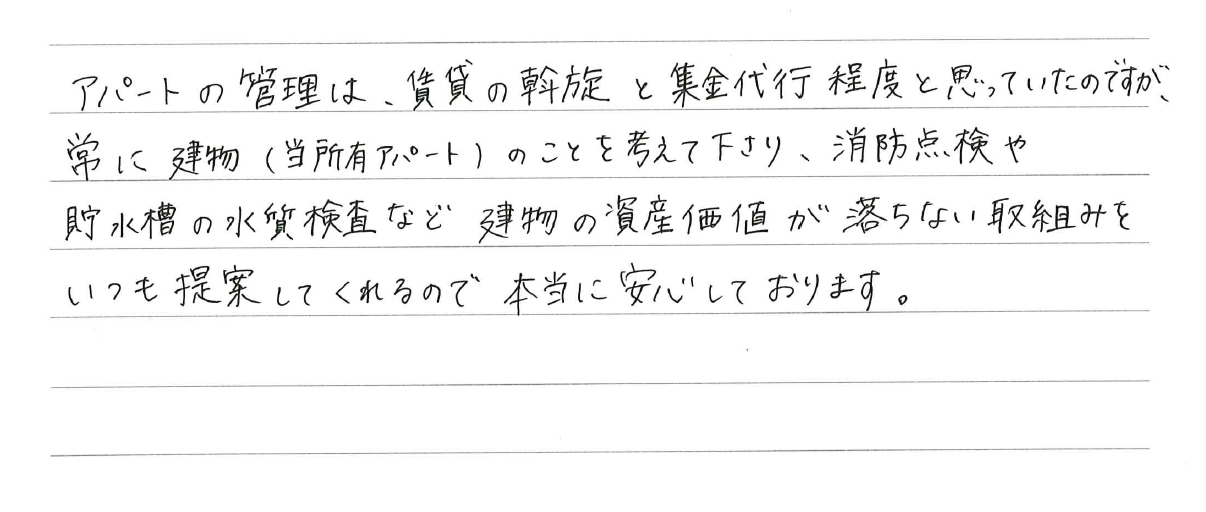 アパートの管理は、賃貸の斡旋と集金代行程度と思っていたのですが、
常に建物(当所有アパート)のことを考えて下さり、消防点検や
貯水槽の水質検査など建物の資産価値が落ちない取組みを
いつも提案してくれるので本当に安心しております。